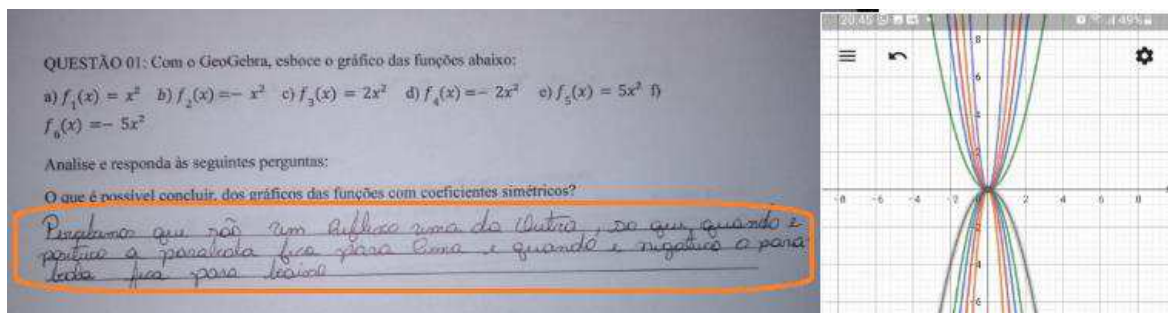 QUESTÃO 01: Com o GeoGebra, esboce o gráfico das funções abaixo:
a) f₁(x) = x² b) f₂(x) =− x² c) f₃(x) = 2x² d) f₄(x) =− 2x² e) f₅(x) = 5x² f)
f₆(x) =− 5x²
Analise e responda às seguintes perguntas:
O que é possível concluir, dos gráficos das funções com coeficientes simétricos?
Percebemos que são um reflexo uma da outra, so que, quando é
positivo a parabola fica para cima e quando é negativo a para
bola fica para baixo
20:45 49%
8
6
4
2
-8 -6 -4 -2 2 4 6 8
-4
-6